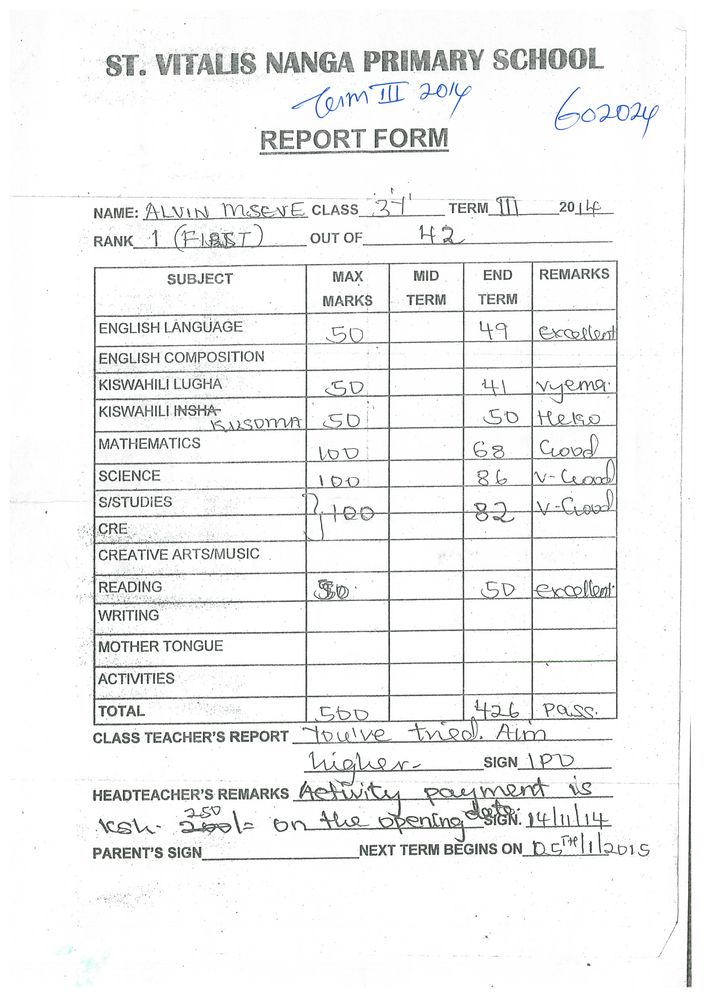 ST. VITALIS NANGA PRIMARY SCHOOL
Term III 2014
602024
REPORT FORM
NAME: ALVIN MSEVE CLASS 3Y TERM III 2014
RANK 1 (FIRST) OUT OF 42
SUBJECT MAX MARKS MID TERM END TERM REMARKS
ENGLISH LANGUAGE 50 49 excellent
ENGLISH COMPOSITION
KISWAHILI LUGHA 50 41 vyema
KISWAHILI INSHA KUSOMA 50 50 Heko
MATHEMATICS 100 68 Good
SCIENCE 100 86 V-Good
S/STUDIES 100 82 V-Good
CRE
CREATIVE ARTS/MUSIC
READING 50 50 excellent
WRITING
MOTHER TONGUE
ACTIVITIES
TOTAL 500 426 Pass.
CLASS TEACHER'S REPORT You've tried. Aim
higher- SIGN IPD
HEADTEACHER'S REMARKS Activity payment is
Ksh. 250/= on the opening date. SIGN. 14/11/14
PARENT'S SIGN NEXT TERM BEGINS ON 05TH/1/2015